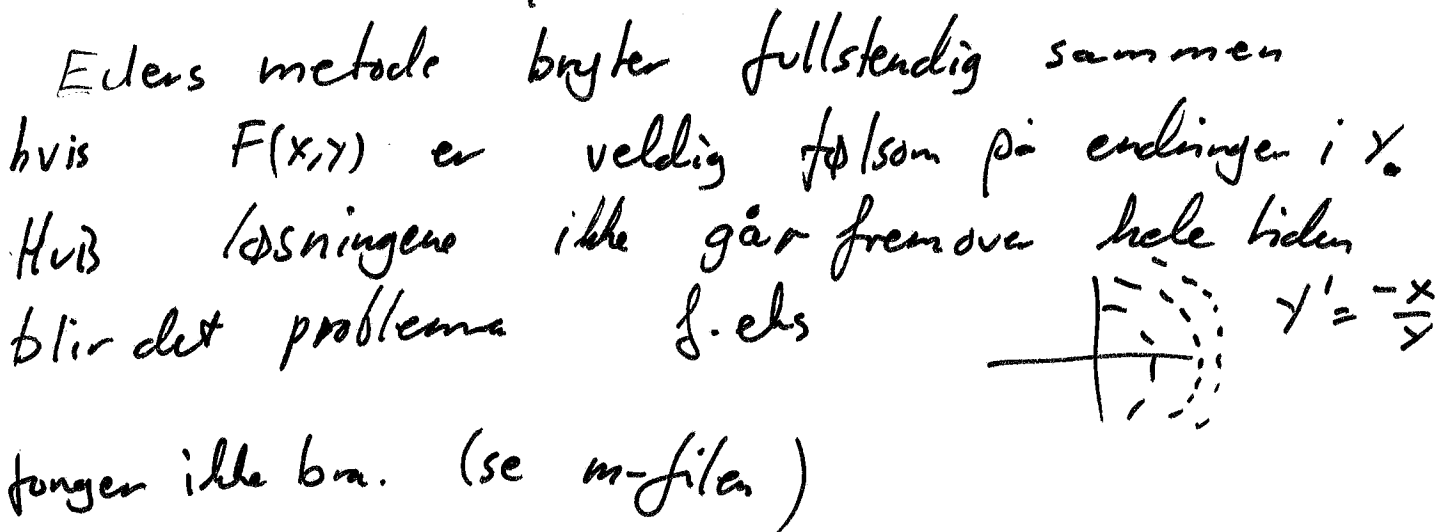 Eulers metode bryter fullstendig sammen
hvis F(x,y) er veldig følsom på endringer i y.
Hvis løsningene ikke går fremover hele tiden
blir det problemer f.eks y' = -x/y
funger ikke bra. (se m-filen)